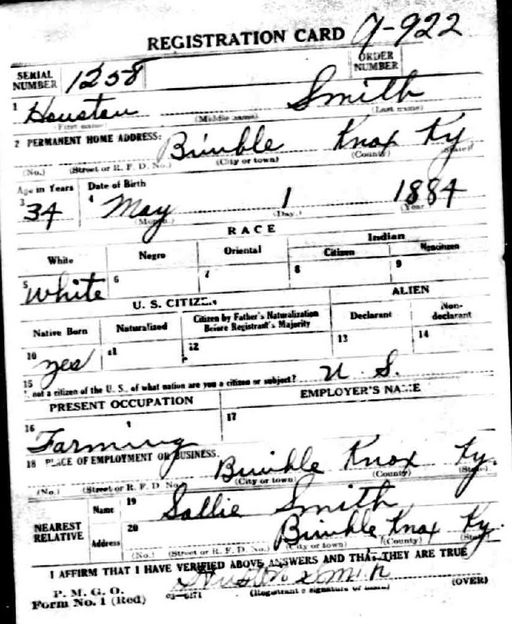 REGISTRATION CARD 9-922
SERIAL NUMBER 1258 ORDER NUMBER
1 Houston Smith
(First name) (Middle name) (Last name)
2 PERMANENT HOME ADDRESS: Bimble Knox Ky
(No.) (Street or R. F. D. No.) (City or town) (County) (State)
Age in Years Date of Birth
3 34 4 May 1 1884
(Month.) (Day.) (Year
RACE
White Negro Oriental Indian
Citizen Noncitizen
5 White 6 7 8 9
U. S. CITIZEN ALIEN
Native Born Naturalized Citizen by Father's Naturalization Before Registrant's Majority Declarant Non-declarant
10 yes 11 12 13 14
15 not a citizen of the U. S., of what nation are you a citizen or subject? U. S.
PRESENT OCCUPATION EMPLOYER'S NAME
16 Farming 17
18 PLACE OF EMPLOYMENT OR BUSINESS. Bimble Knox Ky.
(No.) (Street or R. F. D. No.) (City or town) (County) (State)
NEAREST RELATIVE Name 19 Sallie Smith
Address 20 Bimble Knox Ky.
(No.) (Street or R. F. D. No.) (City or town) (County) (State)
I AFFIRM THAT I HAVE VERIFIED ABOVE ANSWERS AND THAT THEY ARE TRUE
P. M. G. O. Houston Smith
Form No. 1 (Red) 03-6171 (Registrant's signature or mark) (OVER)